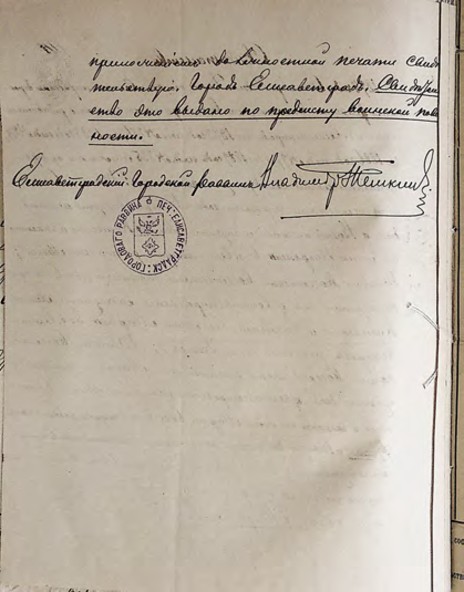 приложеніемъ должностной печати свидѣ
тельствую. Городъ Елисаветградъ. Свидѣтель
ство это выдано по предмету воинской пови
нности.
Елисаветградскій Городской Раввинъ Владиміръ Темкинъ
ПЕЧ. ЕЛИСАВЕТГРАДСК: ГОРОДОВАГО РАВВИНА